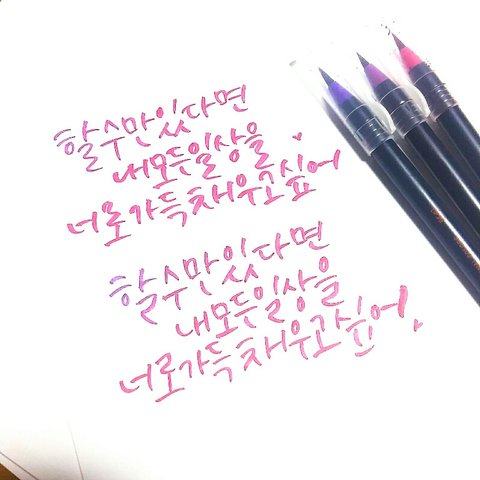 할수만있다면
내모든일상을
너로가득채우고싶어
할수만있다면
내모든일상을
너로가득채우고싶어